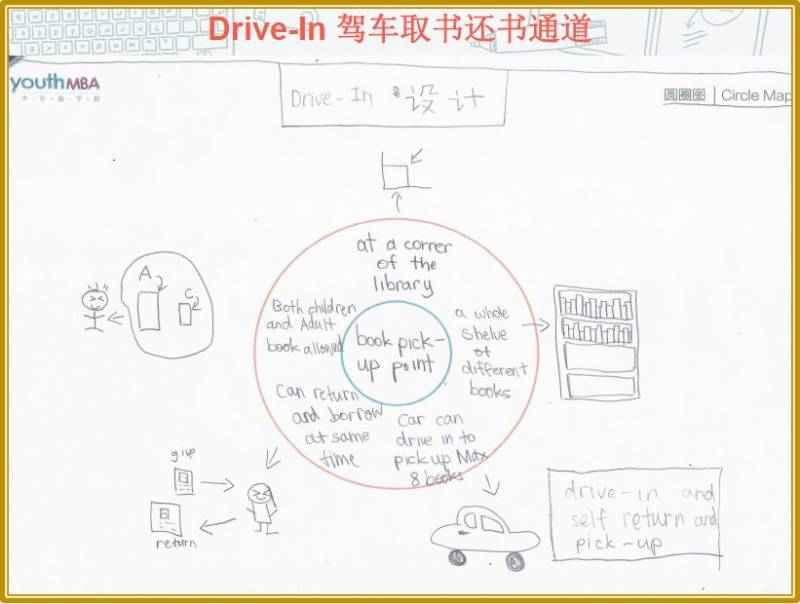 Drive-In 驾车取书还书通道
youthMBA
少年商学院
圆圈图 | Circle Map
Drive-In 设计
at a corner
of the
library
Both children
and Adult
book allowed
book pick-
up point
a whole
shelve
of
different
books
Can return
and borrow
at same
time
Car can
drive in to
pickup Max
8 books
A
C
give
return
drive-in and
self return and
pick-up